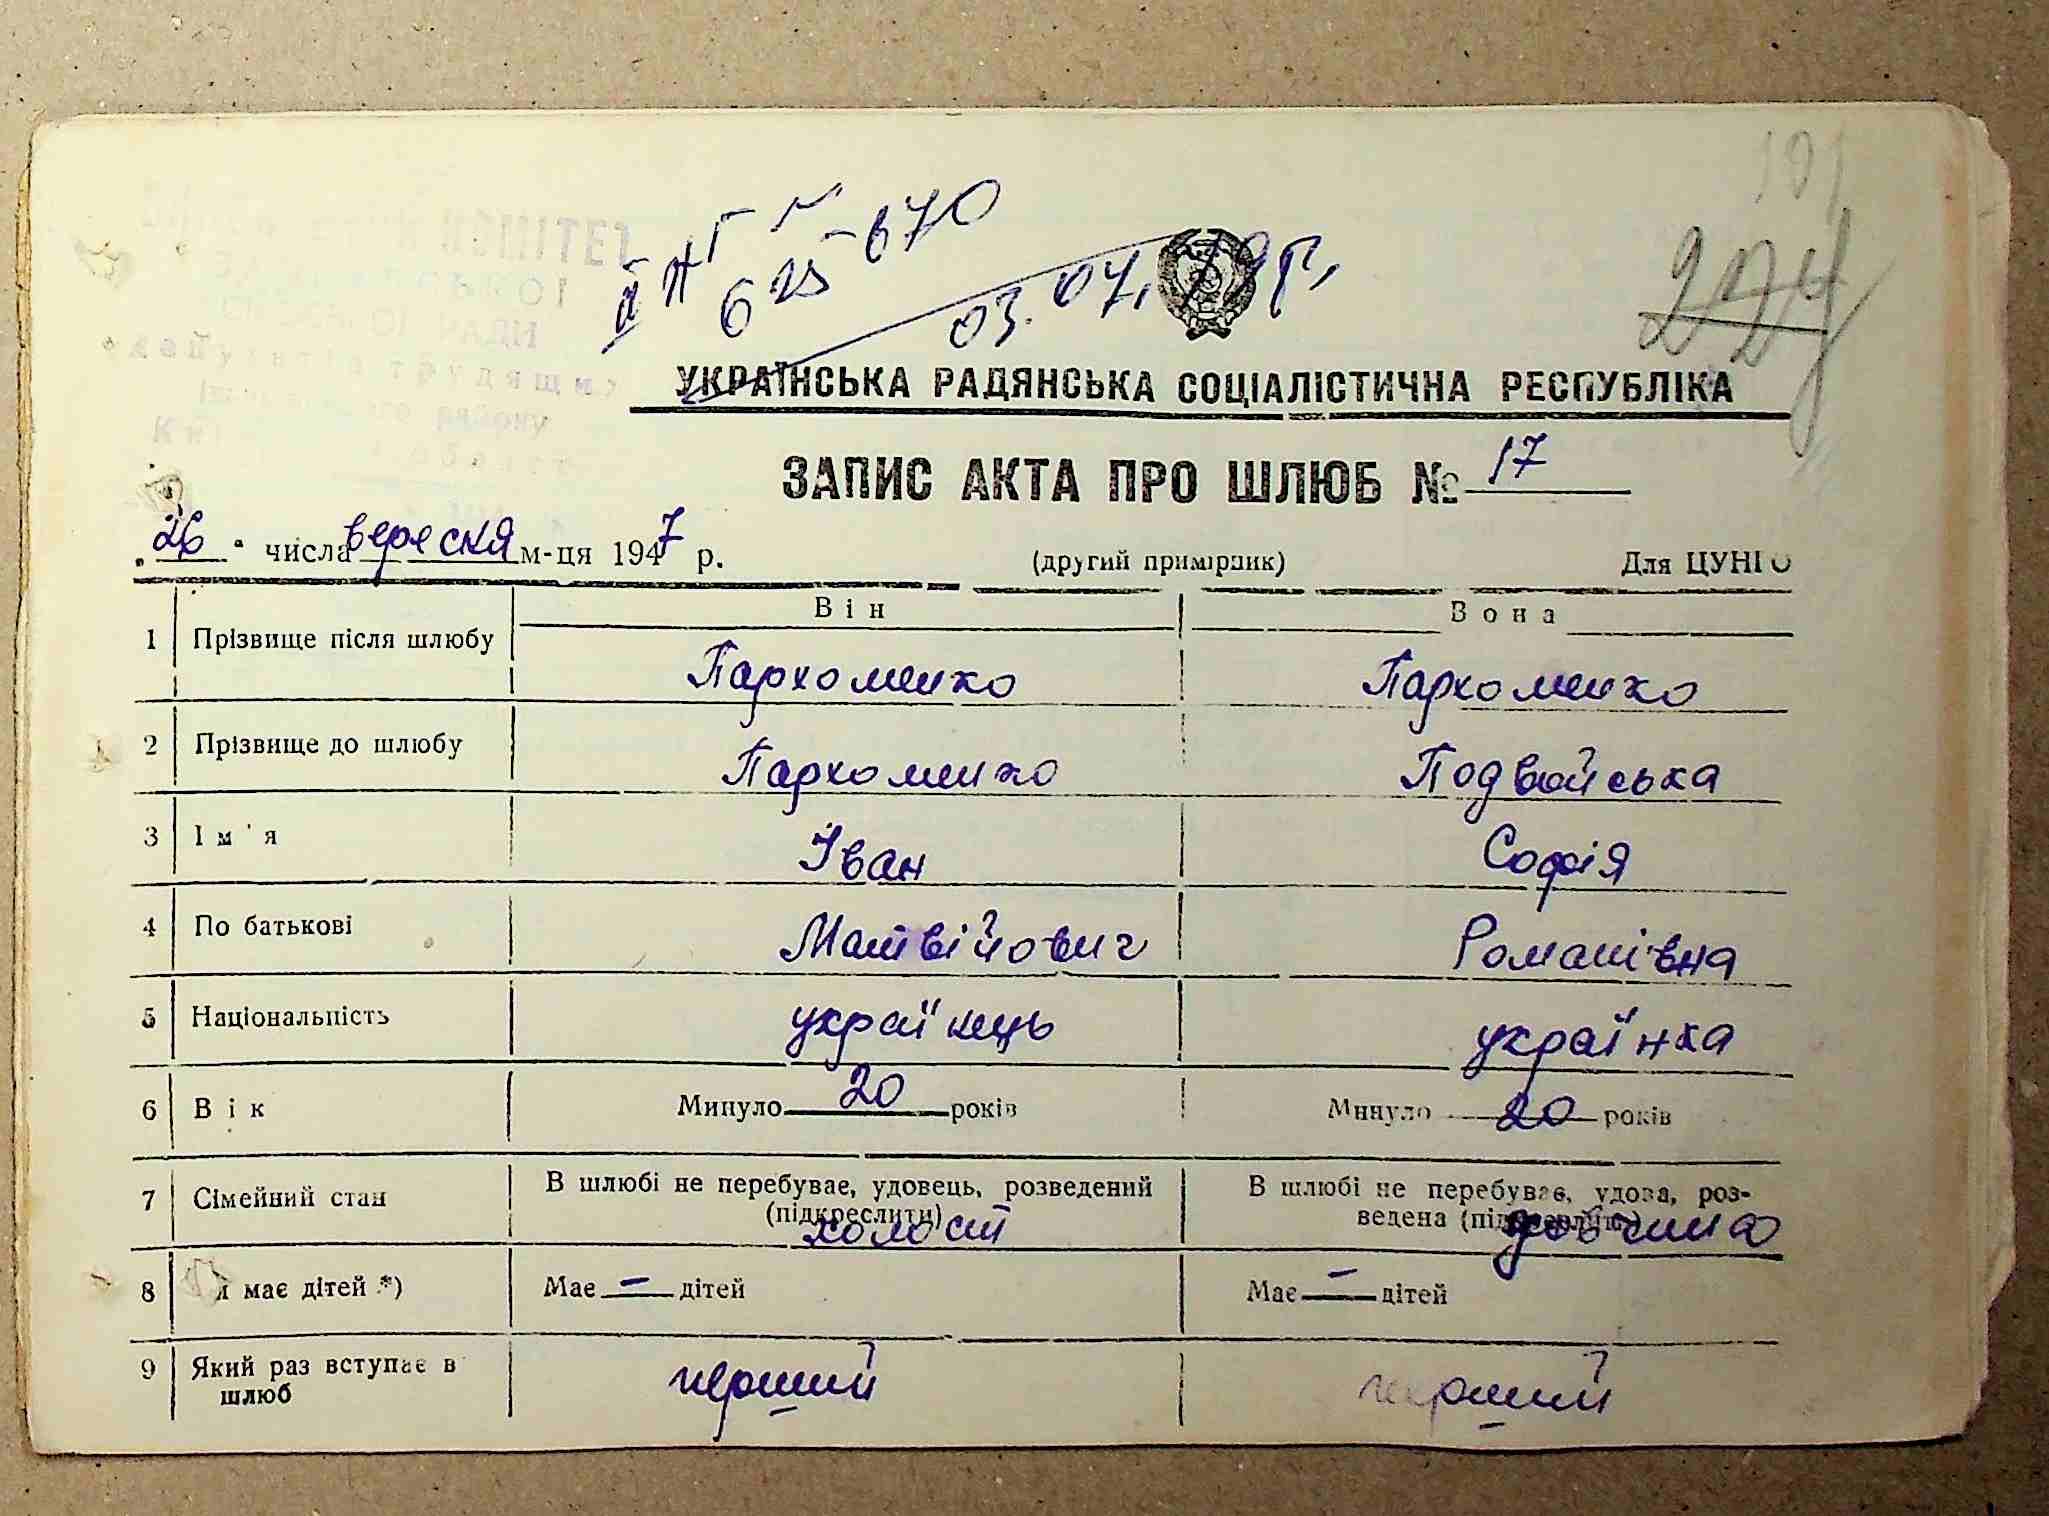 101
224
КОМІТЕТ
РАДИ
трудящих
району
ІІ НГ № 625670
03.07.79р.
УКРАЇНСЬКА РАДЯНСЬКА СОЦІАЛІСТИЧНА РЕСПУБЛІКА
ЗАПИС АКТА ПРО ШЛЮБ № 17
„26" числа вересня м-ця 1947 р. (другий примірник) Для ЦУНГО
Він Вона
1 Прізвище після шлюбу Пархоменко Пархоменко
2 Прізвище до шлюбу Пархоменко Подвойська
3 Ім'я Іван Софія
4 По батькові Матвійович Романівна
5 Національність українець українка
6 Вік Минуло 20 років Минуло 20 років
7 Сімейний стан В шлюбі не перебуває, удовець, розведений В шлюбі не перебуває, удова, роз-
(підкреслити) ведена (підкреслити)
холост дівчина
8 має дітей *) Має — дітей Має — дітей
9 Який раз вступає в перший перший
шлюб